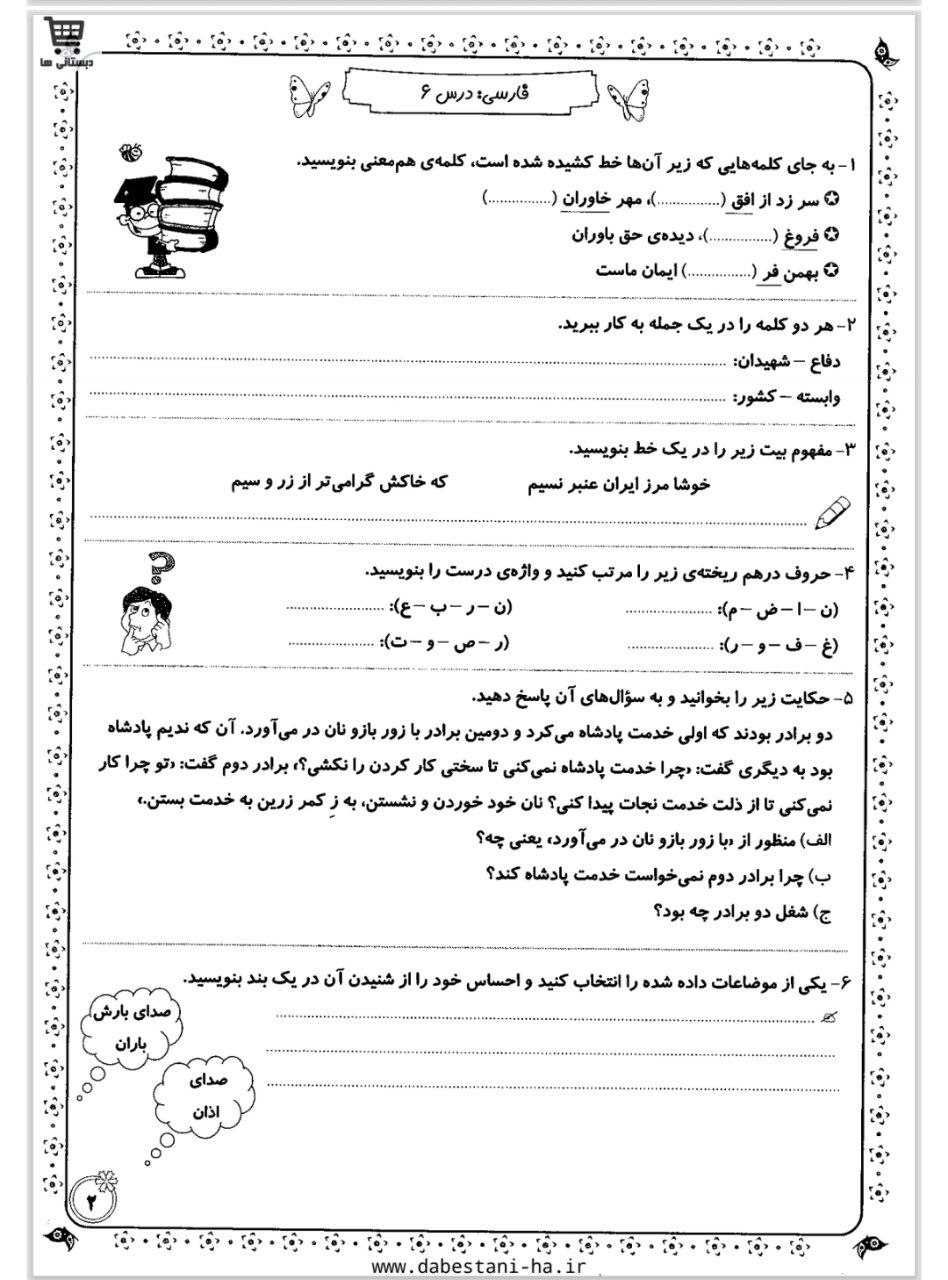 دبستانی ها
فارسی: درس ۶
۱- به جای کلمه‌هایی که زیر آن‌ها خط کشیده شده است، کلمه‌ی هم‌معنی بنویسید.
✪ سر زد از افق (...............)، مهر خاوران (...............)
✪ فروغ (...............)، دیده‌ی حق باوران
✪ بهمن فر (...............) ایمان ماست
۲- هر دو کلمه را در یک جمله به کار ببرید.
دفاع – شهیدان: ...............
وابسته – کشور: ...............
۳- مفهوم بیت زیر را در یک خط بنویسید.
خوشا مرز ایران عنبر نسیم که خاکش گرامی‌تر از زر و سیم
۴- حروف درهم ریخته‌ی زیر را مرتب کنید و واژه‌ی درست را بنویسید.
(ن – ا – ض – م): ............... (ن – ر – ب – ع): ...............
(غ – ف – و – ر): ............... (ر – ص – و – ت): ...............
۵- حکایت زیر را بخوانید و به سؤال‌های آن پاسخ دهید.
دو برادر بودند که اولی خدمت پادشاه می‌کرد و دومین برادر با زور بازو نان در می‌آورد. آن که ندیم پادشاه
بود به دیگری گفت: «چرا خدمت پادشاه نمی‌کنی تا سختی کار کردن را نکشی؟» برادر دوم گفت: «تو چرا کار
نمی‌کنی تا از ذلت خدمت نجات پیدا کنی؟ نان خود خوردن و نشستن، به زِ کمر زرین به خدمت بستن.»
الف) منظور از «با زور بازو نان در می‌آورد» یعنی چه؟
ب) چرا برادر دوم نمی‌خواست خدمت پادشاه کند؟
ج) شغل دو برادر چه بود؟
۶- یکی از موضاعات داده شده را انتخاب کنید و احساس خود را از شنیدن آن در یک بند بنویسید.
صدای بارش
باران
صدای
اذان
۲
www.dabestani-ha.ir